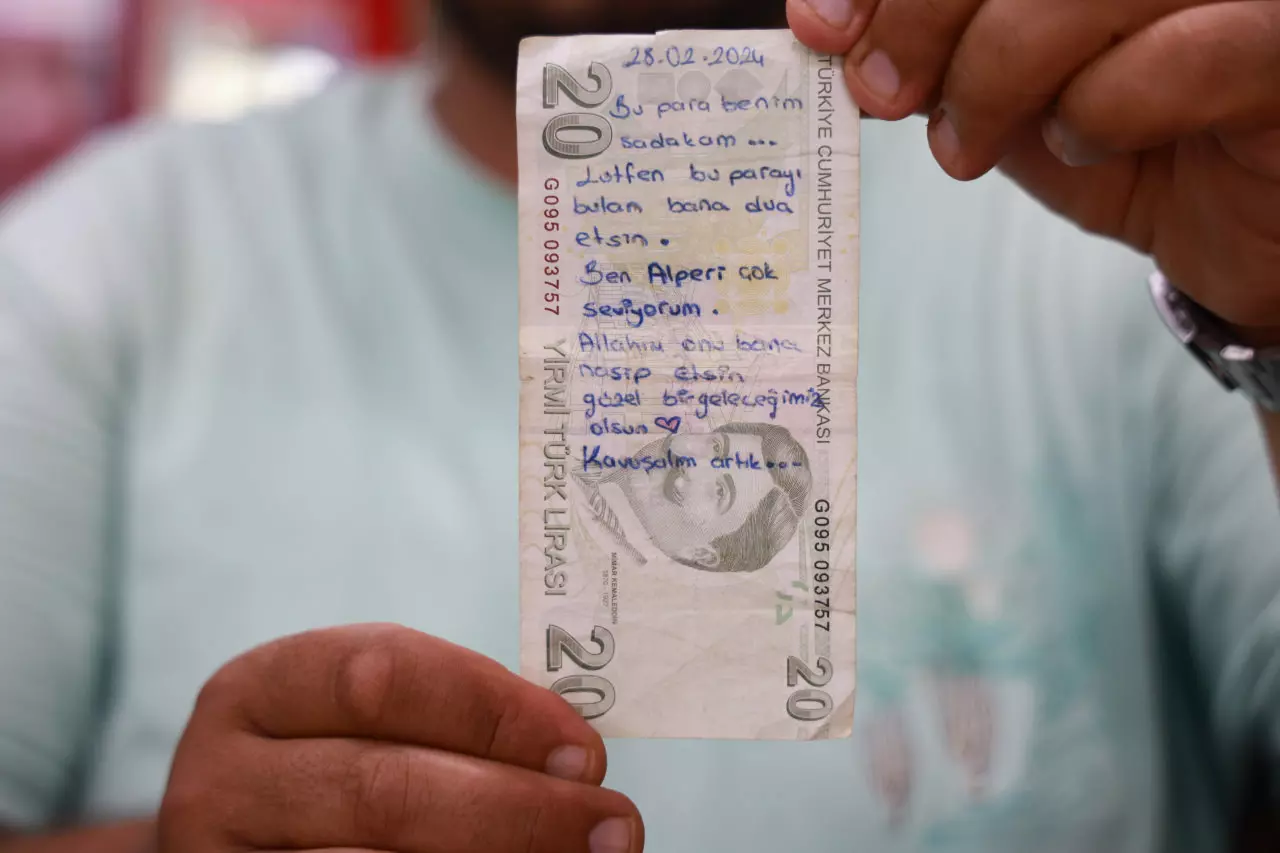 28.02.2024
Bu para benim
sadakam...
Lutfen bu parayı
bulan bana dua
etsin.
Ben Alperi çok
seviyorum.
Allahım onu bana
nasip etsin
güzel bir geleceğimiz
olsun ♡
Kavuşalım artık...
20
G095 093757
YİRMİ TÜRK LİRASI
20
TÜRKİYE CUMHURİYET MERKEZ BANKASI
G095 093757
20
MİMAR KEMALEDDİN
1870 - 1927